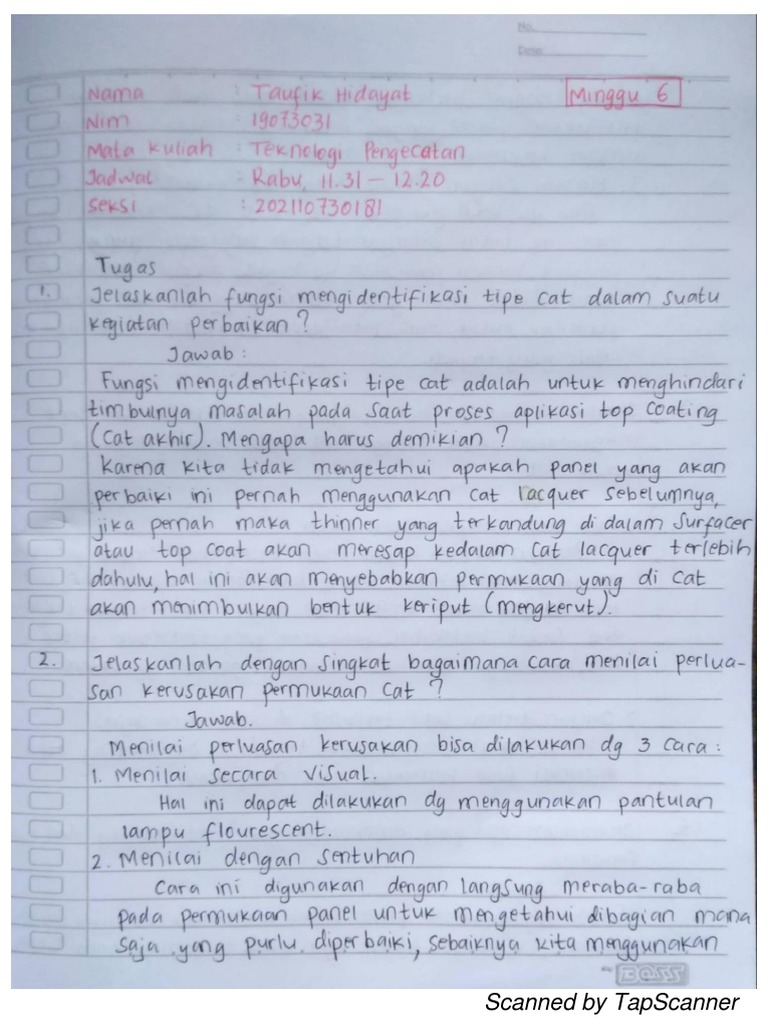 No.
Date
Nama : Taufik Hidayat
Minggu 6
Nim : 19073031
Mata kuliah : Teknologi Pengecatan
Jadwal : Rabu, 11.31 – 12.20
Seksi : 202110730181
Tugas
1. Jelaskanlah fungsi mengidentifikasi tipe cat dalam suatu
kegiatan perbaikan ?
Jawab :
Fungsi mengidentifikasi tipe cat adalah untuk menghindari
timbulnya masalah pada saat proses aplikasi top coating
(cat akhir). Mengapa harus demikian ?
Karena kita tidak mengetahui apakah panel yang akan
perbaiki ini pernah menggunakan cat lacquer sebelumnya,
jika pernah maka thinner yang terkandung di dalam surfacer
atau top coat akan meresap kedalam cat lacquer terlebih
dahulu, hal ini akan menyebabkan permukaan yang di cat
akan menimbulkan bentuk keriput (mengkerut).
2. Jelaskanlah dengan singkat bagaimana cara menilai perlua-
san kerusakan permukaan cat ?
Jawab.
Menilai perluasan kerusakan bisa dilakukan dg 3 cara :
1. Menilai secara visual.
Hal ini dapat dilakukan dg menggunakan pantulan
lampu flourescent.
2. Menilai dengan sentuhan
Cara ini digunakan dengan langsung meraba-raba
pada permukaan panel untuk mengetahui dibagian mana
saja yang purlu diperbaiki, sebaiknya kita menggunakan
BOSS
Scanned by TapScanner